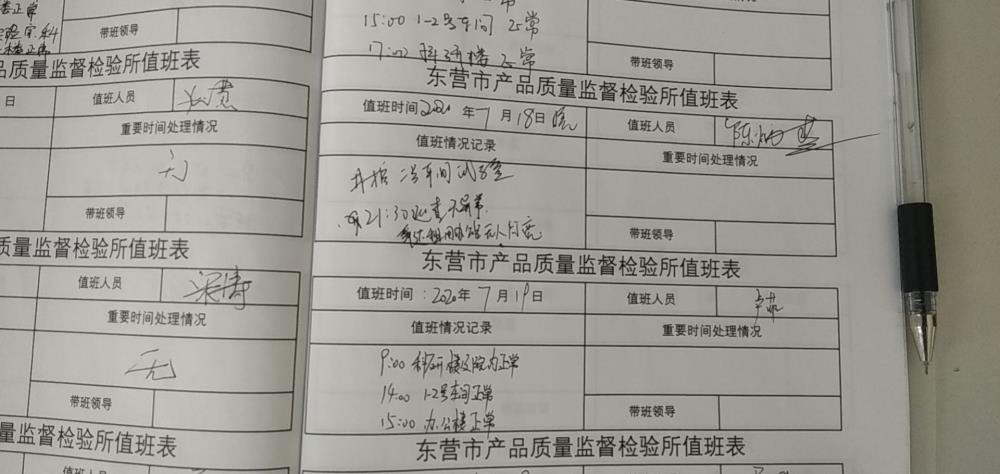 楼正常
带班领导
品质量监督检验所值班表
日
值班人员
重要时间处理情况
无
带班领导
质量监督检验所值班表
值班人员
梁涛
重要时间处理情况
无
带班领导
量监督检验所值班表
值班人员
15:00 1-2号车间 正常
17:00 科研楼 正常
带班领导
东营市产品质量监督检验所值班表
值班时间2020年7月18日
值班人员
陈炳
值班情况记录
重要时间处理情况
2号车间试验室
21:30
带班领导
东营市产品质量监督检验所值班表
值班时间:2020年7月19日
值班人员
值班情况记录
重要时间处理情况
9:00 科研楼及院内正常
14:00 1-2号车间正常
15:00 办公楼正常
带班领导
东营市产品质量监督检验所值班表